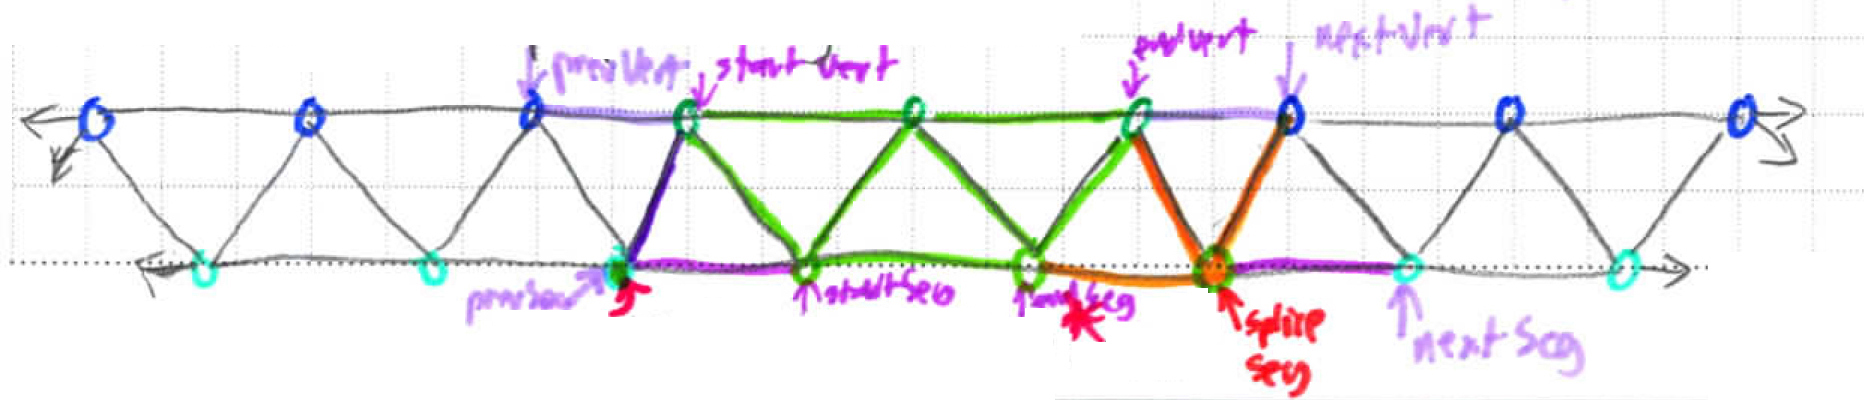 prevVert
start Vert
endVert
nextVert
prevSeg
startSeg
endSeg
splice
seg
next Seg